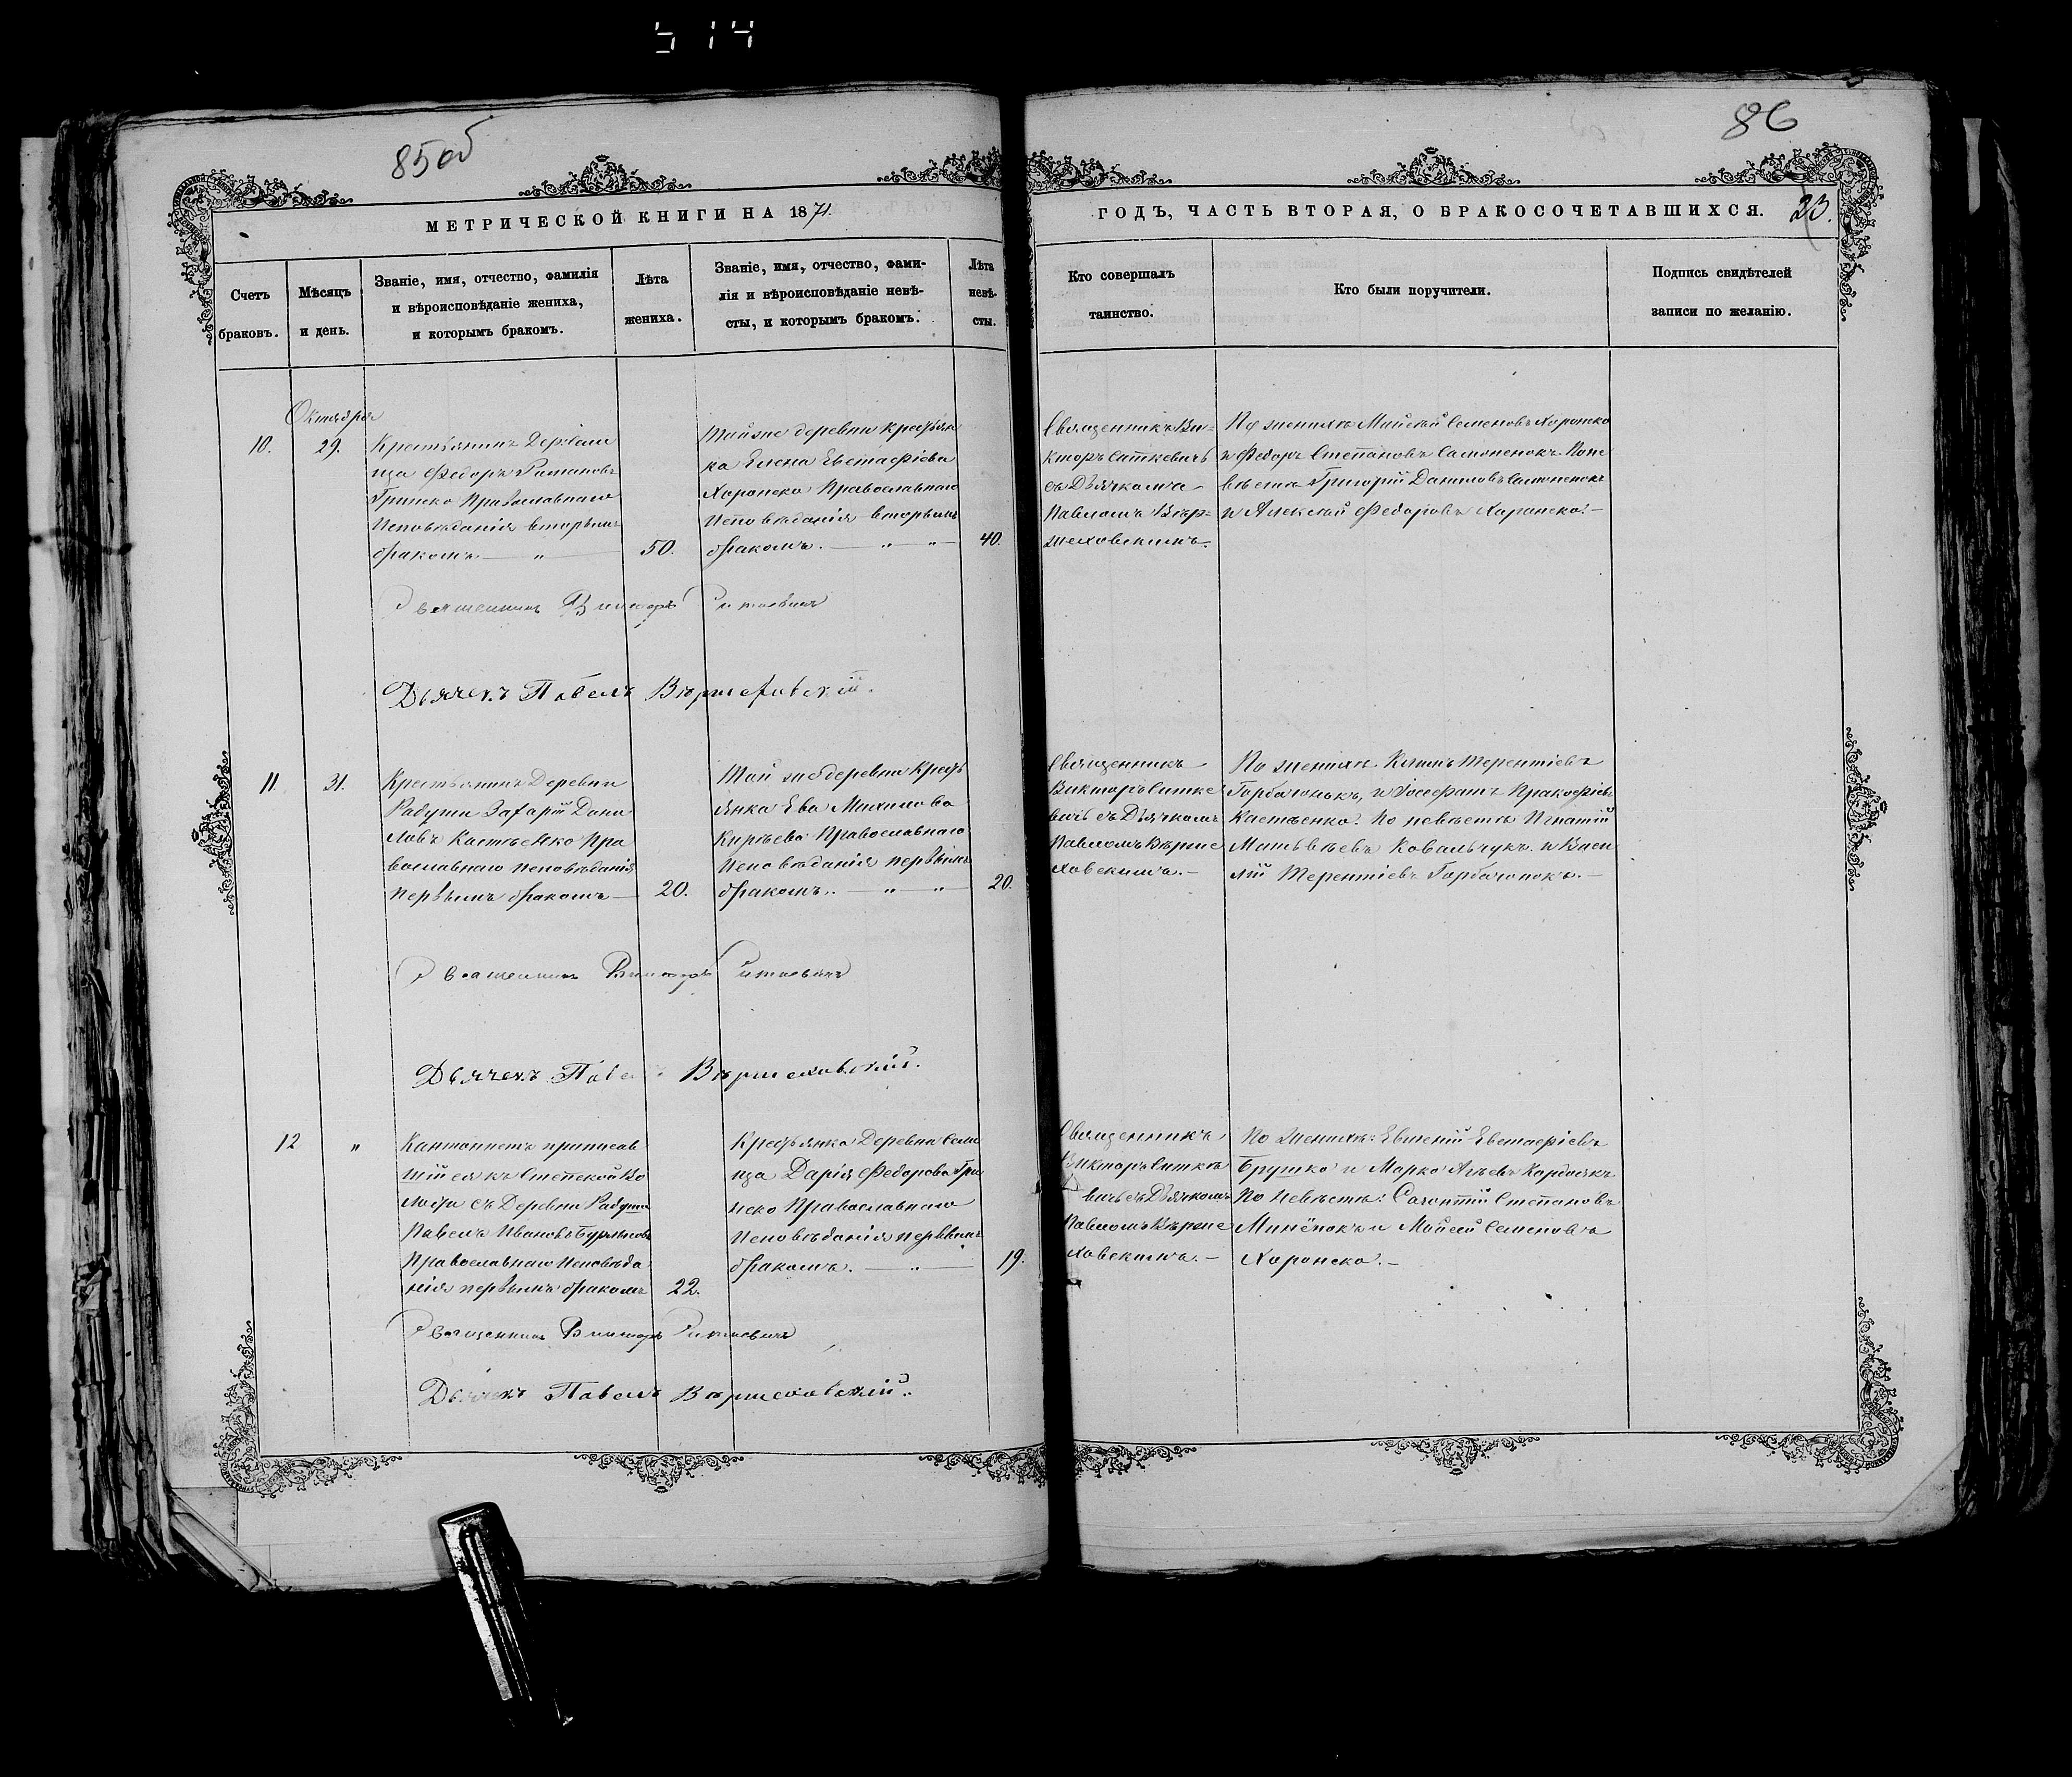 514
85об
86
МЕТРИЧЕСКОЙ КНИГИ НА 1871.
ГОДЪ, ЧАСТЬ ВТОРАЯ, О БРАКОСОЧЕТАВШИХСЯ.
23.
Счетъ
браковъ.
Мѣсяцъ
и день.
Званіе, имя, отчество, фамилія
и вѣроисповѣданіе жениха,
и которымъ бракомъ.
Лѣта
жениха.
Званіе, имя, отчество, фами-
лія и вѣроисповѣданіе невѣ-
сты, и которымъ бракомъ.
Лѣта
невѣ-
сты.
Кто совершалъ
таинство.
Кто были поручители.
Подпись свидѣтелей
записи по желанію.
10.
Октября
29.
Крестьянинъ Дер: Сели
ща Федоръ Романовъ
Гринско Православнаго
Исповѣданія вторымъ
бракомъ — „ —
50.
Тойже деревни крестьян
ка Елена Евстафіева
Харонско Православнаго
Исповѣданія вторымъ
бракомъ. — „ — „ —
40.
Священникъ Ви-
кторъ Ситкевичъ
съ Дьячкомъ
Павломъ Вѣр-
жеховскимъ.
По женихѣ Мойсей Семеновъ Харонско
и Федоръ Степановъ Самоненокъ По не
вѣстѣ Григорій Даниловъ Самоненокъ
и Алексѣй Федоровъ Харонско. —
Священникъ Викторъ Ситкевичъ
Дьячекъ Павелъ Вѣржеховскій.
11.
31.
Крестьянинъ Деревни
Радуши Захарій Дани
ловъ Костѣенко Пра
вославнаго исповѣданія
первымъ бракомъ —
20.
Той же деревни Кресть
янка Ева Михайлова
Кирѣева Православнаго
Исповѣданія первымъ
бракомъ. — „ — „ —
20.
Священникъ
Викторъ Ситке
вичъ съ Дьячкомъ
Павломъ Вѣрже
ховскимъ. —
По женихѣ Климъ Терентіевъ
Горбачонокъ, и Іосефатъ Пракофіевъ
Костѣенко. По невѣстѣ Игнатій
Матьвѣевъ Ковальчукъ и Васи
лій Терентіевъ Горбачонокъ. —
Священникъ Викторъ Ситкевичъ
Дьячекъ Павелъ Вѣржеховскій.
12
„
Кантонистъ приписав
шійся къ Степской Во
лости съ Деревни Радуши
Павелъ Ивановъ
Православнаго Исповѣда
нія первымъ бракомъ
22.
Крестьянка Деревни Сели
ща Дарія Федорова Гри
нско Православнаго
Исповѣданія первымъ
бракомъ. — „ —
19.
Священникъ
Викторъ Ситке
вичъ съ Дьячкомъ
Павломъ Вѣрже
ховскимъ. —
По женихѣ: Евгеній Евстафіевъ
Брушко и Марко
По Невѣстѣ: Созонтій Степановъ
Минёнокъ и Мойсей Семеновъ
Харонско. —
Священникъ Викторъ Ситкевичъ
Дьячекъ Павелъ Вѣржеховскій.